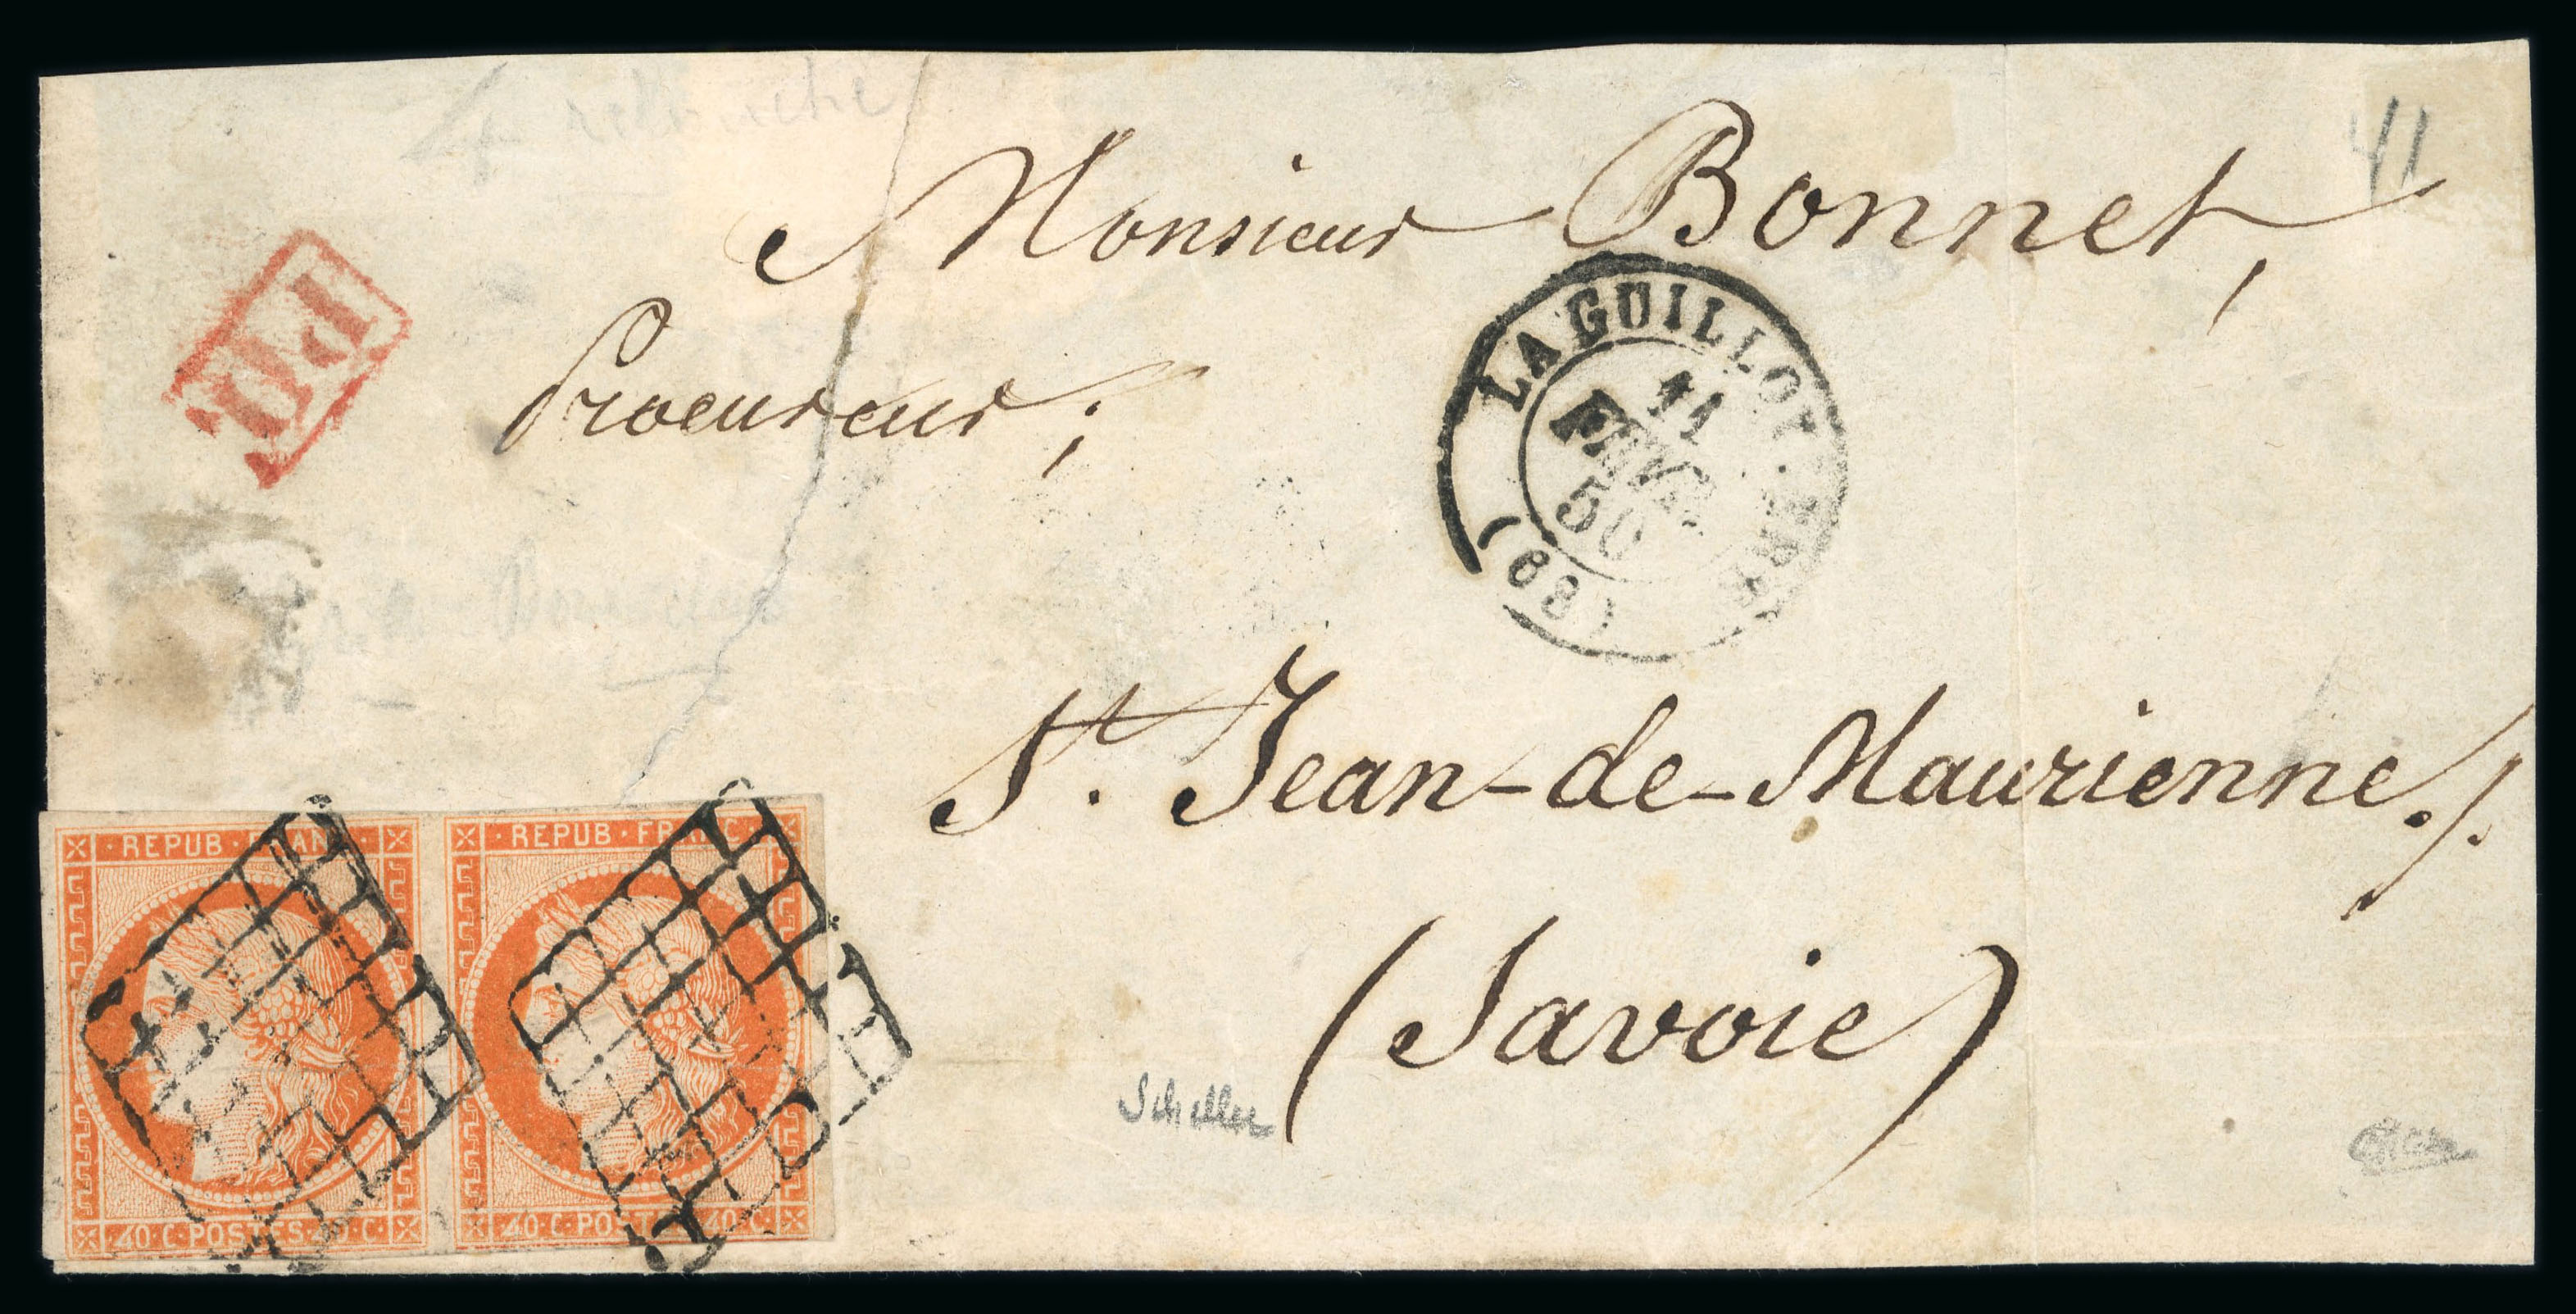 41
Monsieur Bonnet,
PD
Procureur,
LA GUILLOT.
11
FEVR.
50
(68)
St. Jean-de-Maurienne
(Savoie)
Scheller
REPUB · FRANC ·
40·C·POSTES·40·C·
REPUB · FRANC ·
40·C·POSTES·40·C·